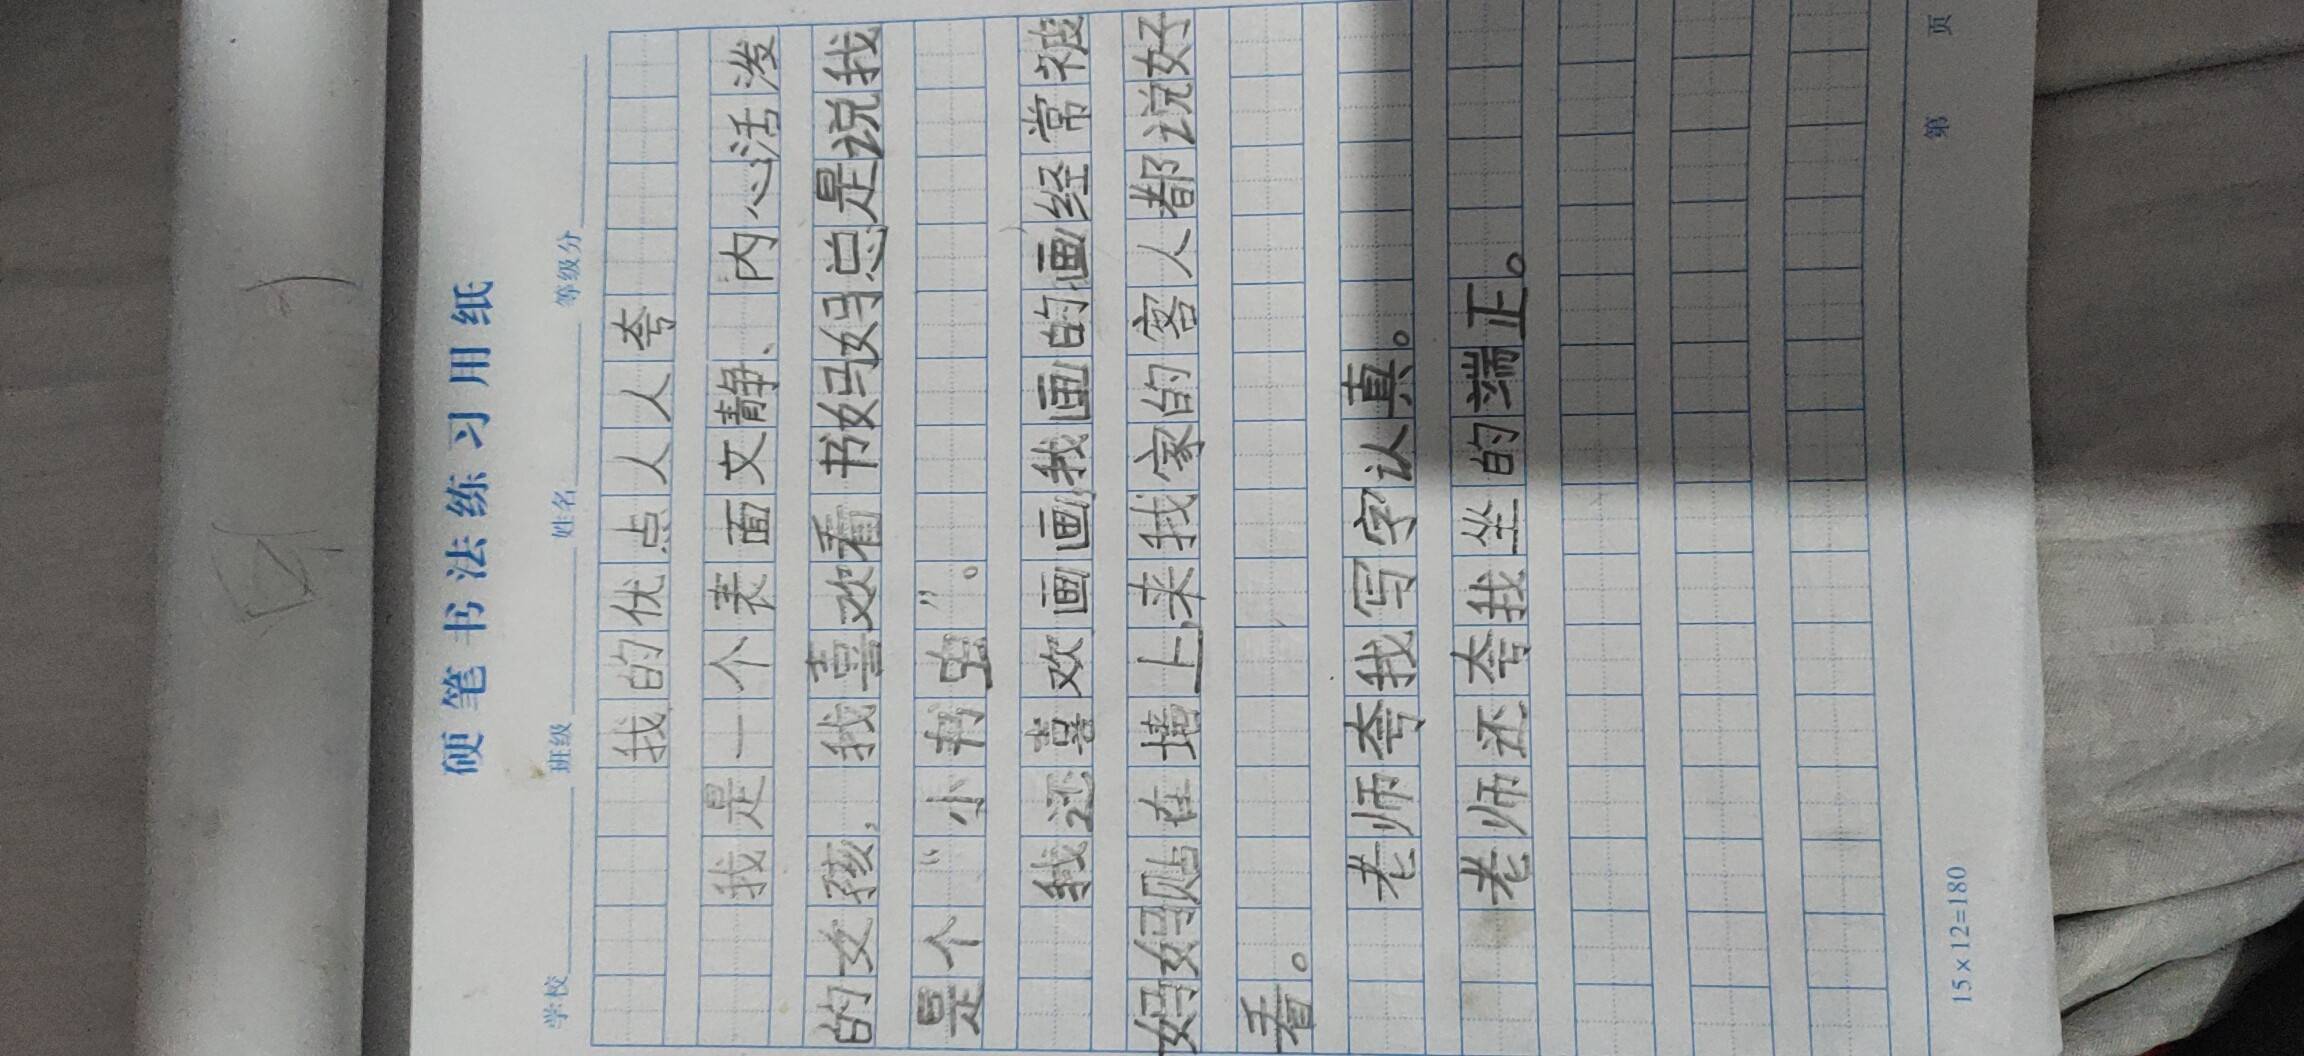 硬笔书法练习用纸
学校 班级 姓名 等级分
我的优点人人夸
我是一个表面文静、内心活泼
的女孩，我喜欢看书妈妈总是说我
是个“小书虫”。
我还喜欢画画，我画的画经常被
妈妈贴在墙上，来我家的客人都说好
看。
老师夸我写字认真。
老师还夸我坐的端正。
15×12=180 第 页